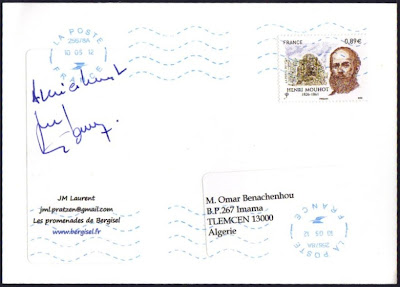 LA POSTE
298/9A
10 05 12
FRANCE
FRANCE
0,89€
HENRI MOUHOT
1826-1861
Amicalement
JM Laurent
jml.pratzen@gmail.com
Les promenades de Bergisel
www.bergisel.fr
M. Omar Benachenhou
B.P.267 Imama
TLEMCEN 13000
Algerie
LA POSTE
298/9A
10 05 12
FRANCE